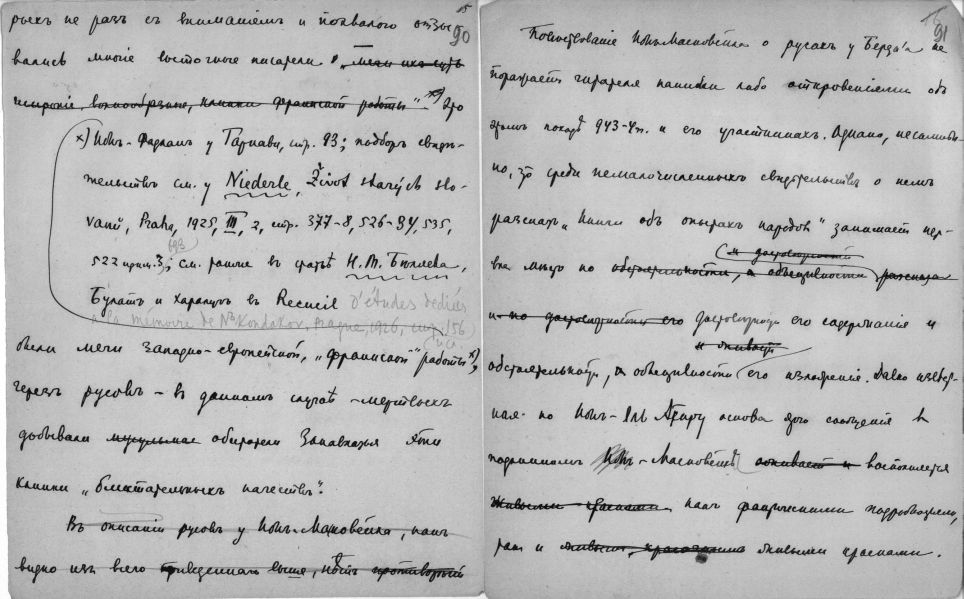 15
90
рыхъ не разъ съ вниманіемъ и похвалою отзы-
вались многіе восточные писатели о „мечи ихъ суть
широкіе, волнообразные, клинки франкской работы“ х) Это
х) Ибнъ-Фадланъ у Гаркави, стр. 93; подборъ свидѣ-
тельствъ см. у Niederle, Život starých Slo-
vanů, Praha, 1925, III, 2, стр. 377-8, 526-34, 535,
522 прим. 3; см. ранѣе въ статьѣ Н. Т. Бѣляева,
Булатъ и Харалугъ въ Recueil d'études dediées
à la mémoire de N. Kondakov, Prague, 1926, стр. 156
были мечи западно-европейской, „франкской“ работы х),
черезъ русовъ – въ данномъ случаѣ – мертвыхъ
добывали мусульмане обиратели Закавказья эти
клинки „блистательныхъ качествъ“.
Въ описаніи русовъ у Ибнъ-Масковейха, какъ
видно изъ всего приведеннаго выше, нѣтъ противорѣчій
16
91
Повѣствованіе Ибнъ Масковейха о русахъ у Берда'а не
поражаетъ читателя какимъ либо откровеніемъ объ
этомъ походѣ 943-4 гг. и его участникахъ. Однако, несомнѣн-
но, что среди немалочисленныхъ свидѣтельствъ о немъ
разсказъ „Книги объ опытахъ народовъ“ занимаетъ пер-
и достовѣрности
вое мѣсто по обстоятельности, и объективности разсказа
и по достовѣрности его достовѣрности его содержанія и
и живости
обстоятельности, и объективности его изложенія. Давно извѣст-
ная по Ибнъ-эль Атиру основа этого сообщенія въ
подлинномъ Ибнъ-Масковейхѣ оживаетъ и восполняется
живыми красками какъ фактическими подробностями,
такъ и живыми, красочными живыми красками.